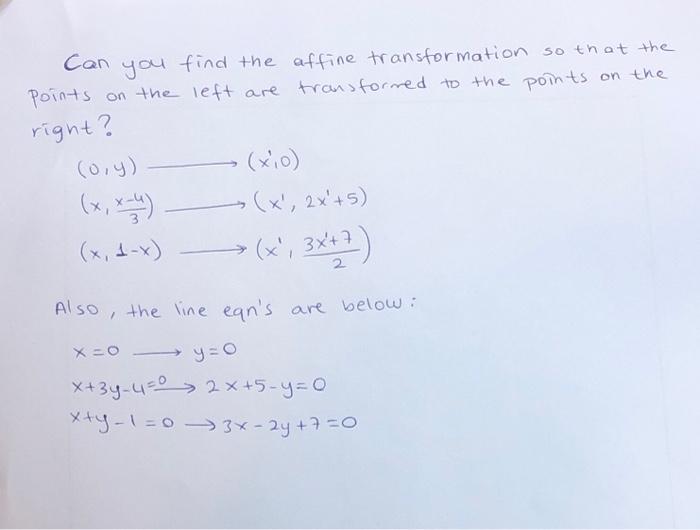 Can you find the affine transformation so that the
points on the left are transformed to the points on the
right?
(0,y) ⟶ (x',0)
(x, x-4/3) ⟶ (x', 2x'+5)
(x, 1-x) ⟶ (x', 3x'+7/2)
Also, the line eqn's are below:
x=0 ⟶ y=0
x+3y-4=0 ⟶ 2x+5-y=0
x+y-1=0 ⟶ 3x-2y+7=0